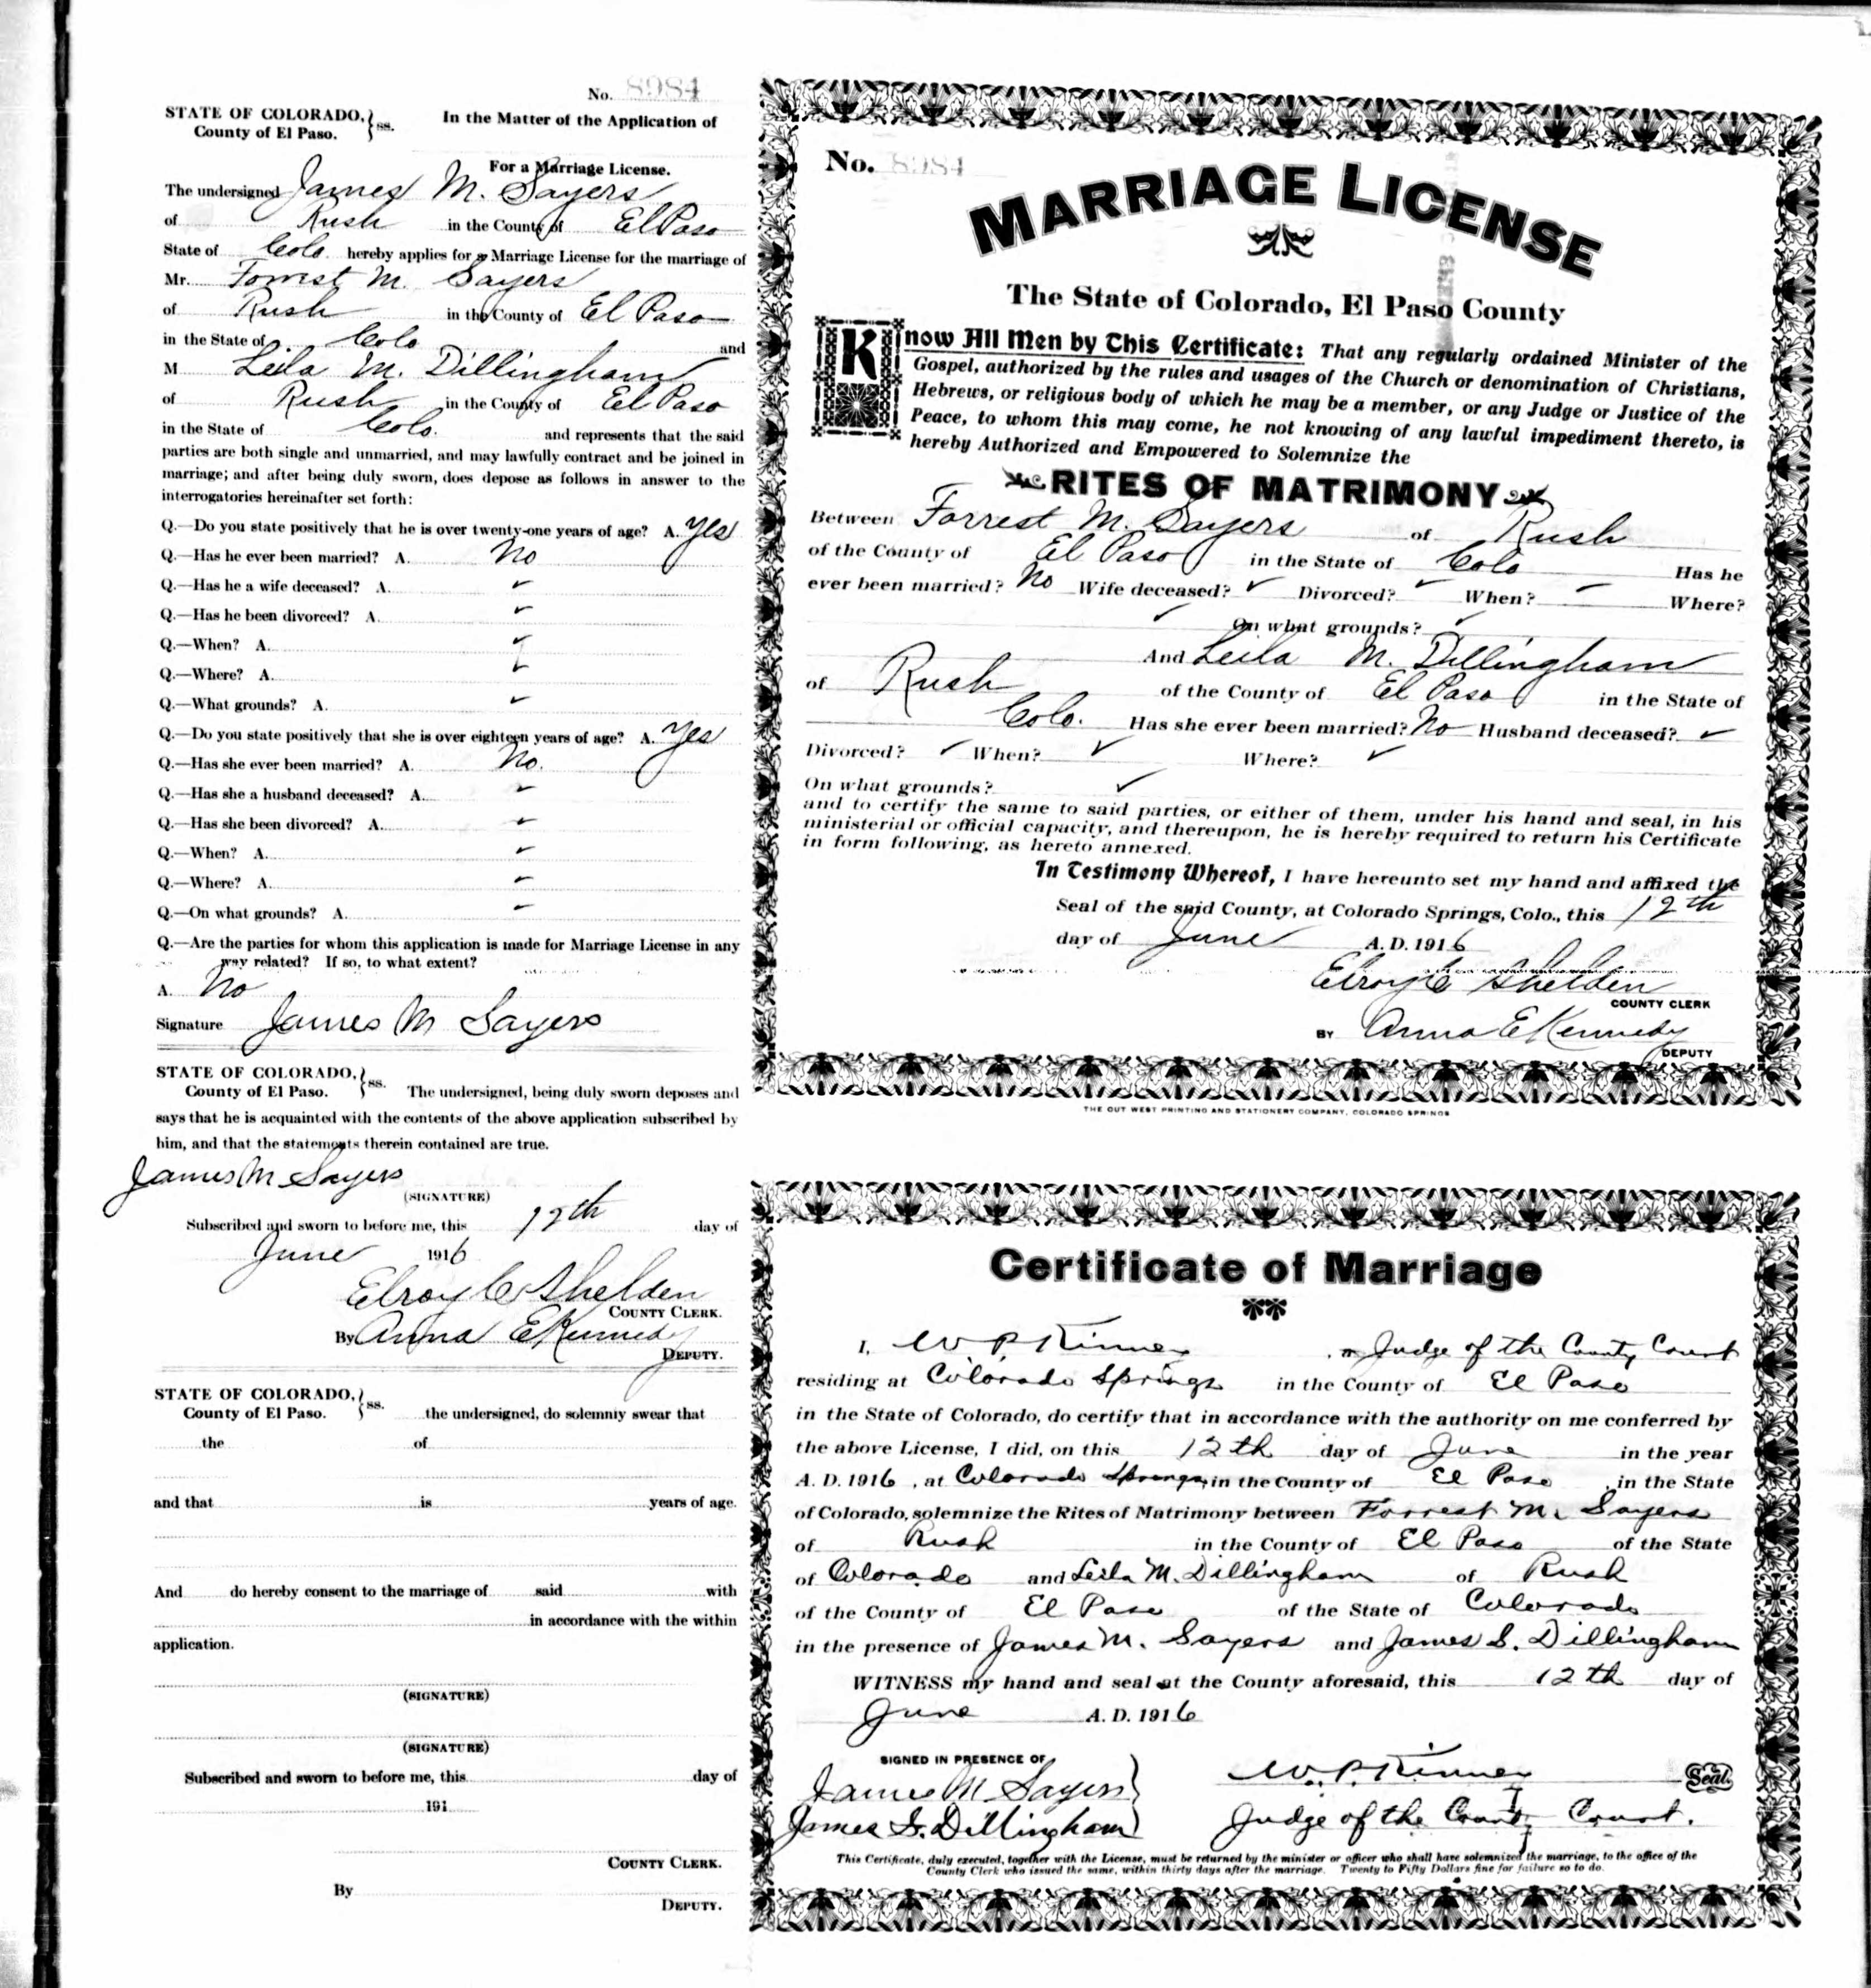 No. 8984
STATE OF COLORADO, } ss.
County of El Paso.
In the Matter of the Application of
For a Marriage License.
The undersigned James M. Sayers
of Rush in the County of El Paso
State of Colo. hereby applies for a Marriage License for the marriage of
Mr. Forrest M. Sayers
of Rush in the County of El Paso
in the State of Colo and
M Leila M. Dillingham
of Rush in the County of El Paso
in the State of Colo. and represents that the said
parties are both single and unmarried, and may lawfully contract and be joined in
marriage; and after being duly sworn, does depose as follows in answer to the
interrogatories hereinafter set forth:
Q.—Do you state positively that he is over twenty-one years of age? A. Yes
Q.—Has he ever been married? A. No
Q.—Has he a wife deceased? A. ✓
Q.—Has he been divorced? A. ✓
Q.—When? A. ✓
Q.—Where? A. ✓
Q.—What grounds? A. ✓
Q.—Do you state positively that she is over eighteen years of age? A. Yes
Q.—Has she ever been married? A. No.
Q.—Has she a husband deceased? A. ✓
Q.—Has she been divorced? A. ✓
Q.—When? A. ✓
Q.—Where? A. ✓
Q.—On what grounds? A. ✓
Q.—Are the parties for whom this application is made for Marriage License in any
way related? If so, to what extent?
A. No
Signature James M Sayers
STATE OF COLORADO, } ss.
County of El Paso. The undersigned, being duly sworn deposes and
says that he is acquainted with the contents of the above application subscribed by
him, and that the statements therein contained are true.
James M Sayers
(SIGNATURE)
Subscribed and sworn to before me, this 12th day of
June 1916
Elroy C Shelden
COUNTY CLERK.
By Anna E Kennedy
DEPUTY.
STATE OF COLORADO, } ss.
County of El Paso. the undersigned, do solemnly swear that
the of
and that is years of age.
And do hereby consent to the marriage of said with
in accordance with the within
application.
(SIGNATURE)
(SIGNATURE)
Subscribed and sworn to before me, this day of
191
COUNTY CLERK.
By
DEPUTY.
No. 8984
MARRIAGE LICENSE
The State of Colorado, El Paso County
Know All Men by This Certificate: That any regularly ordained Minister of the
Gospel, authorized by the rules and usages of the Church or denomination of Christians,
Hebrews, or religious body of which he may be a member, or any Judge or Justice of the
Peace, to whom this may come, he not knowing of any lawful impediment thereto, is
hereby Authorized and Empowered to Solemnize the
RITES OF MATRIMONY
Between Forrest M. Sayers of Rush
of the County of El Paso in the State of Colo Has he
ever been married? No Wife deceased? ✓ Divorced? ✓ When? ✓ Where?
✓ On what grounds? ✓
And Leila M. Dillingham
of Rush of the County of El Paso in the State of
Colo. Has she ever been married? No Husband deceased? ✓
Divorced? ✓ When? ✓ Where? ✓
On what grounds? ✓
and to certify the same to said parties, or either of them, under his hand and seal, in his
ministerial or official capacity, and thereupon, he is hereby required to return his Certificate
in form following, as hereto annexed.
In Testimony Whereof, I have hereunto set my hand and affixed the
Seal of the said County, at Colorado Springs, Colo., this 12th
day of June A. D. 1916
Elroy C Shelden
COUNTY CLERK
BY Anna E Kennedy
DEPUTY
THE OUT WEST PRINTING AND STATIONERY COMPANY, COLORADO SPRINGS
Certificate of Marriage
I, W. P. Kinney, a Judge of the County Court
residing at Colorado Springs in the County of El Paso
in the State of Colorado, do certify that in accordance with the authority on me conferred by
the above License, I did, on this 12th day of June in the year
A. D. 1916, at Colorado Springs, in the County of El Paso, in the State
of Colorado, solemnize the Rites of Matrimony between Forrest M. Sayers
of Rush in the County of El Paso of the State
of Colorado and Leila M. Dillingham of Rush
of the County of El Paso of the State of Colorado
in the presence of James M. Sayers and James S. Dillingham
WITNESS my hand and seal at the County aforesaid, this 12th day of
June A. D. 1916
SIGNED IN PRESENCE OF
James M Sayers }
James S. Dillingham }
W. P. Kinney Seal.
Judge of the County Court.
This Certificate, duly executed, together with the License, must be returned by the minister or officer who shall have solemnized the marriage, to the office of the
County Clerk who issued the same, within thirty days after the marriage. Twenty to Fifty Dollars fine for failure so to do.